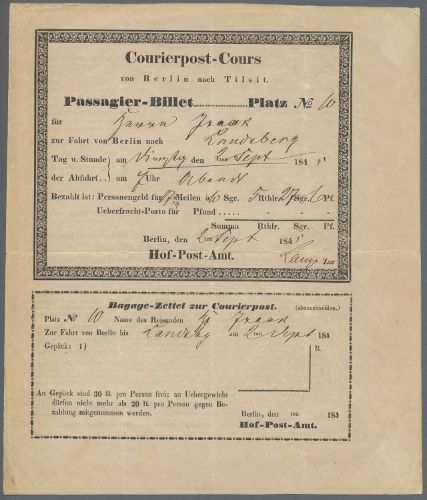 Courierpost-Cours
von Berlin nach Tilsit.
Passagier-Billet..................Platz № 10
für Herrn Isaak
zur Fahrt von Berlin nach Landsberg
Tag u. Stunde } am Dienstag den 2ten Sept 184
der Abfahrt.. } um Uhr Abends
Bezahlt ist: Personengeld für Meilen à 10 Sgr. 5 Rthlr. 27 Sgr. 6 Pf.
Ueberfracht-Porto für Pfund
Summa Rthlr. Sgr. Pf.
Berlin, den 2ten Sept 184
Hof-Post-Amt.
Zur
Bagage-Zettel zur Courierpost. (abzuschneiden.)
Platz № 10 Name des Reisenden Isaak
Zur Fahrt von Berlin bis Landsbg am 2ten Sept 184
Gepäck: 1)
An Gepäck sind 30 ℔. pro Person frei; an Uebergewicht
dürfen nicht mehr als 20 ℔. pro Person gegen Be-
zahlung mitgenommen werden.
Berlin, den ten 184
Hof-Post-Amt.